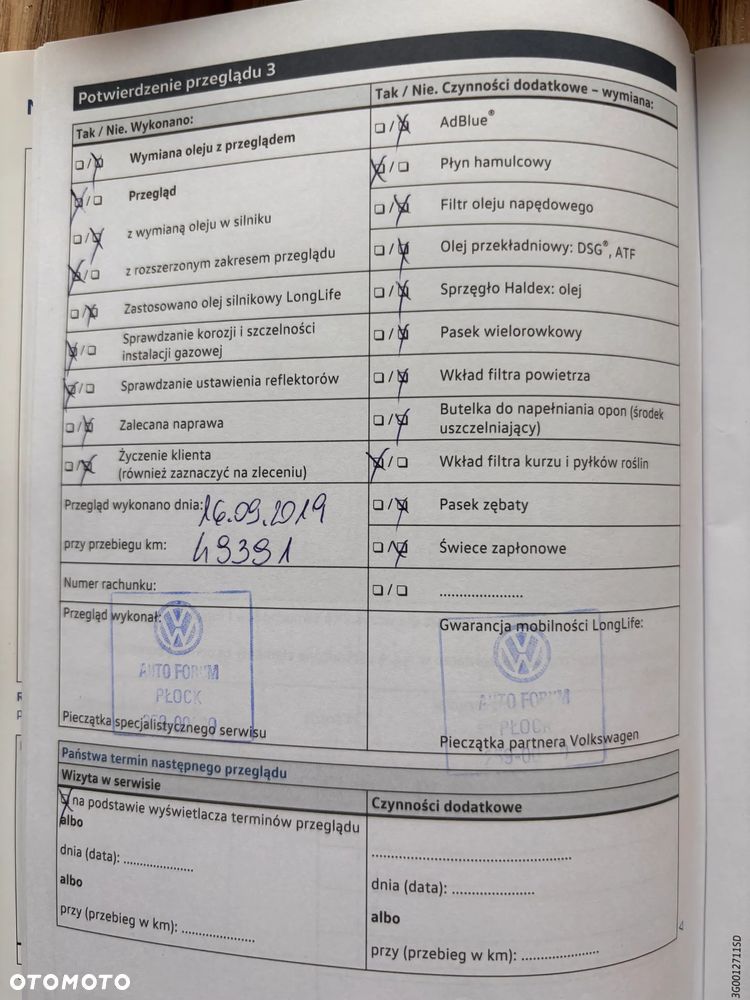 Potwierdzenie przeglądu 3
Tak / Nie. Wykonano:
Wymiana oleju z przeglądem
Przegląd
z wymianą oleju w silniku
z rozszerzonym zakresem przeglądu
Zastosowano olej silnikowy LongLife
Sprawdzanie korozji i szczelności
instalacji gazowej
Sprawdzanie ustawienia reflektorów
Zalecana naprawa
Życzenie klienta
(również zaznaczyć na zleceniu)
Przegląd wykonano dnia: 16.09.2019
przy przebiegu km: 49391
Numer rachunku:
Przegląd wykonał:
AUTO FORUM
PŁOCK
Pieczątka specjalistycznego serwisu
Tak / Nie. Czynności dodatkowe – wymiana:
AdBlue®
Płyn hamulcowy
Filtr oleju napędowego
Olej przekładniowy: DSG®, ATF
Sprzęgło Haldex: olej
Pasek wielorowkowy
Wkład filtra powietrza
Butelka do napełniania opon (środek
uszczelniający)
Wkład filtra kurzu i pyłków roślin
Pasek zębaty
Świece zapłonowe
.....................
Gwarancja mobilności LongLife:
AUTO FORUM
PŁOCK
Pieczątka partnera Volkswagen
Państwa termin następnego przeglądu
Wizyta w serwisie
na podstawie wyświetlacza terminów przeglądu
albo
dnia (data): ..................
albo
przy (przebieg w km): ...................
Czynności dodatkowe
..................................................
dnia (data): .....................
albo
przy (przebieg w km): ....................
3G0012711SD
OTOMOTO